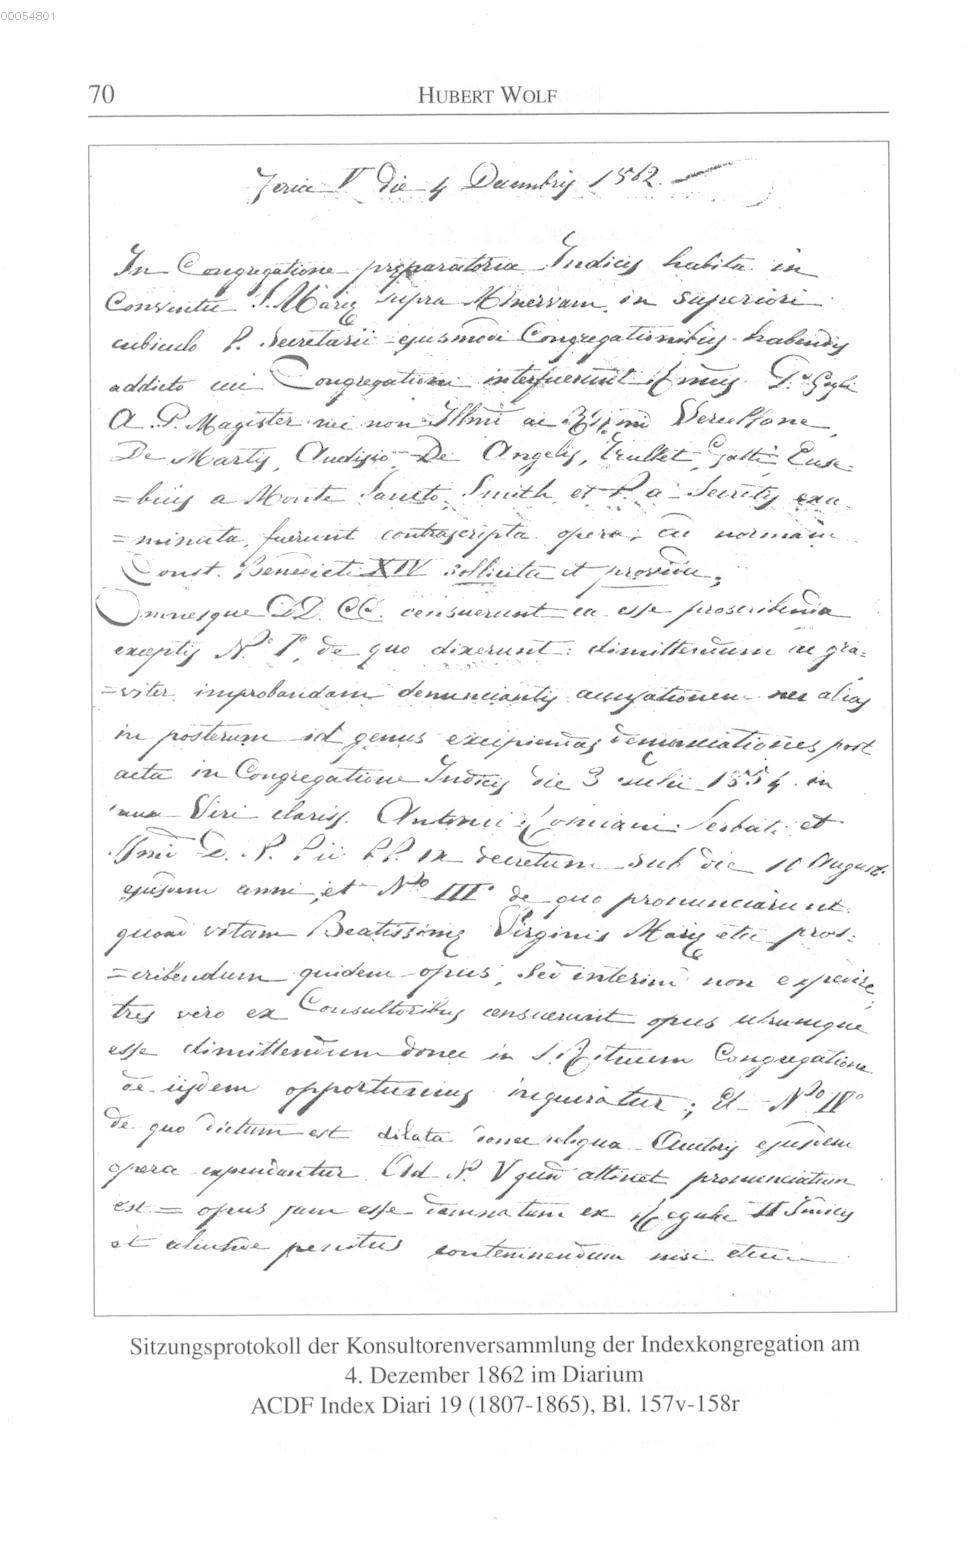 00054801
70 HUBERT WOLF
Feria V die 4 Decembris 1862.
In Congregatione preparatoria Indicis habita in
Conventu S. Mariæ supra Minervam in superiori
cubiculo P. Secretarii ejusmodi Congregationibus habendis
addicto cui Congregationi interfuerunt
A. P. Magister nec non Illmi ac Rmi
De Martis, Audisio, De Angelis, Trullet, Gatti Euse-
=bius a Monte Sancto, Smith et P. a Secretis exa-
=minata fuerunt contrascripta opera, ad normam
Const. Benedicti XIV sollicita et provida;
Omnesque DD. CC. censuerunt ea esse proscribenda
exceptis N. I, de quo dixerunt: dimittendum ac gra=
=viter improbandam denunciantis accusationem nec alias
in posterum id genus excipiendas denunciationes post
acta in Congregatione Indicis die 3 Julii 1854 in
Viri clariss. Antonii Rosmini Serbati et
Ssmi D. N. Pii PP. IX decretum sub die 10 Augusti
ejusdem anni, et No III de quo pronunciarunt
quoad vitam Beatissimæ Virginis Mariæ etc pros=
=cribendum quidem opus, sed interim non expedire
tres vero ex Consultoribus censuerunt opus utrumque
esse dimittendum donec in Congregatione
de iisdem opportunius inquiratur; Et No IVo
de quo dictum est dilata donec reliqua Auctoris ejusdem
opera expendantur. Ad N. V quod attinet pronunciatum
est = opus jam esse damnatum ex Regula II Indicis
et penitus contemnendum nisi etc.
Sitzungsprotokoll der Konsultorenversammlung der Indexkongregation am
4. Dezember 1862 im Diarium
ACDF Index Diari 19 (1807-1865), Bl. 157v-158r